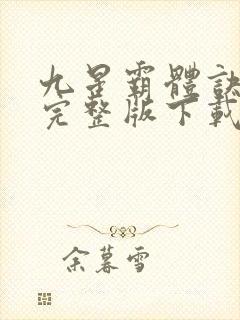 九星霸體訣
完整版下載
余暮雪